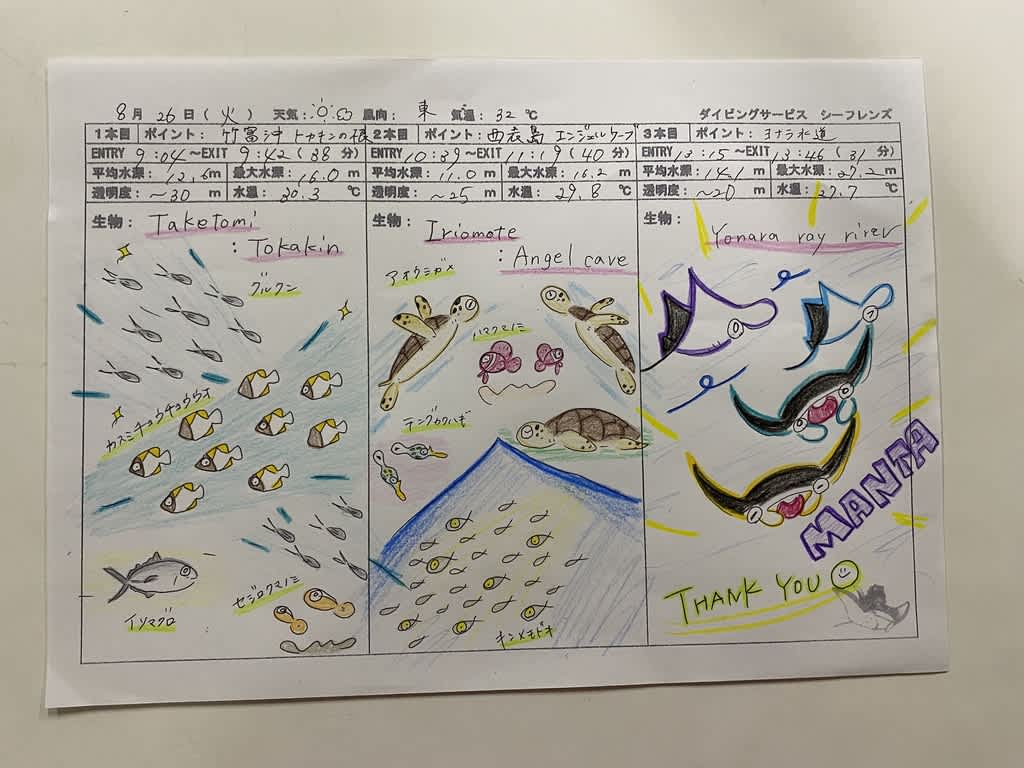 8月 26日(火) 天気: 風向: 東 気温: 32 ℃ ダイビングサービス シーフレンズ
1本目 ポイント: 竹富沖 トカキンの根 2本目 ポイント: 西表島 エンジェルケーブ 3本目 ポイント: ヨナラ水道
ENTRY 9:04 ~EXIT 9:42 (38 分) ENTRY 10:39 ~EXIT 11:19 (40 分) ENTRY 13:15 ~EXIT 13:46 (31 分)
平均水深: 12.6m 最大水深: 16.0 m 平均水深: 11.0 m 最大水深: 16.2 m 平均水深: 14.1 m 最大水深: 27.2 m
透明度: ~30 m 水温: 30.3 ℃ 透明度: ~25 m 水温: 29.8 ℃ 透明度: ~20 m 水温: 29.7 ℃
生物: Taketomi
: Tokakin
グルクン
カスミチョウチョウウオ
イソマグロ
セジロクマノミ
生物: Iriomote
: Angel cave
アオウミガメ
ハマクマノミ
テングカワハギ
キンメモドキ
生物:
Yonara ray rirer
MANTA
THANK YOU